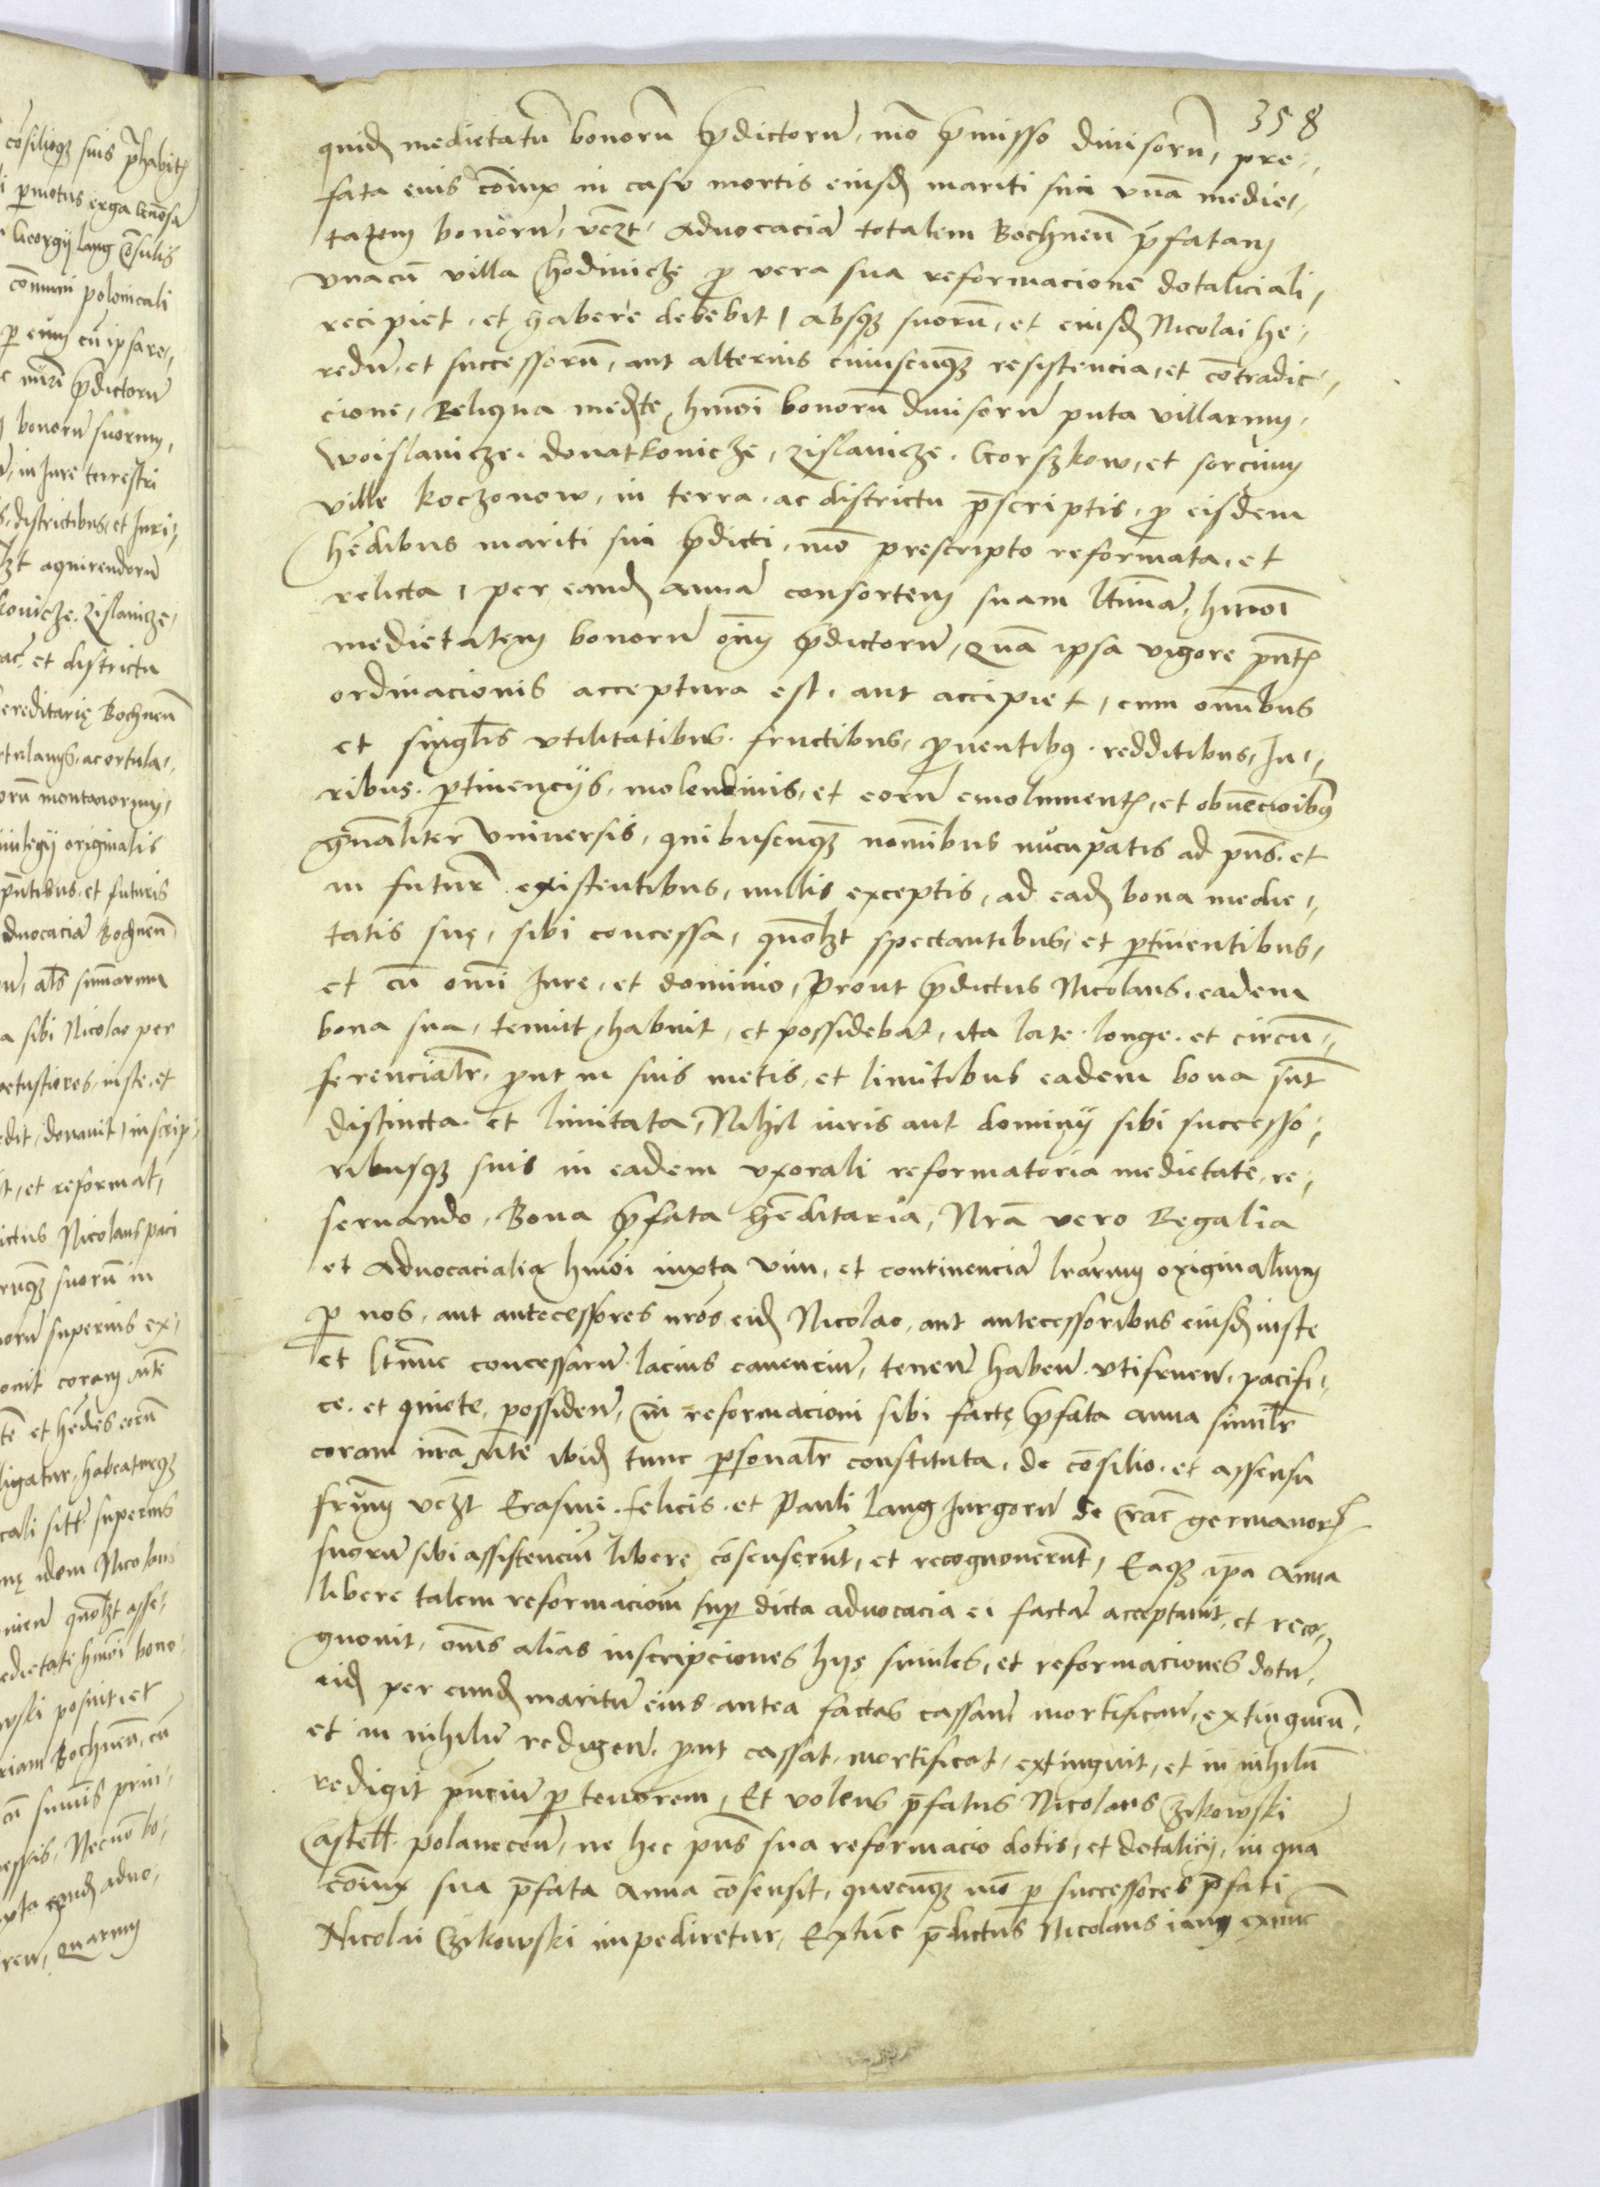 358
quid medietatū bonorū p̄dictorū, mō p̄misso diuisorū, pre-
fata eius cōiux in casu mortis eiusd mariti sui vnā medie-
tatem bonorū, vczt. Aduocaciā totalem Bochneñ p̄fatam
vnacū villa Chodinicze p vera sua reformacione dotaliciali,
recipiet, et habere debebit, absqz suorū, et eiusd Nicolai he-
redū, et successorū, aut alterius cuiuscunqz resistencia, et cōtradic-
cione, Reliqua medtē hmōi bonorū diuisorū puta villarum,
Woislauicze. donatkouicze, Zislauicze. Gorszkow, et sorcium
ville Koczonow, in terra, ac districtu p̄scriptis, p eisdem
hēdibus mariti sui p̄dicti, mō prescripto reformata, et
relicta, per eand annā consortem suam ltimā, hmōi
medietatem bonorū oīm p̄dictorū, quā ipsa vigore pñt
ordinacionis acceptura est, aut accipiet, cum omībus
et singlis vtilitatibus. fructibus, prouentibus. redditibus, Iu-
ribus, ptinencijs, molendinis, et eorū emolument, et obuēcioibus
gñaliter vniuersis, quibuscunqz nomībus nūcupatis ad pñs. et
in futur existentibus, nullis exceptis, ad ead bona medie-
tatis suę, sibi concessa, quōlzt spectantibus, et ptinentibus,
et cū omī Iure, et dominio, prout p̄dictus Nicolaus, eadem
bona sua, tenuit, habuit, et possidebat, ita late. longe. et circū-
ferencialr, put in suis metis, et limitibus eadem bona sūt
distincta. et limitata, Nihil iuris aut dominij sibi successo-
ribusqz suis in eadem vxorali reformatoria medietate, re-
seruando, Bona p̄fata hēditaria, Nrā vero Regalia
et Aduocacialia hmōi iuxta vim, et continenciā lrārum originalium
p nos, aut antecessores nrōs eid Nicolao, aut antecessoribus eiusd iuste
et ltime concessarū. lacius canenciū, tenen̄ haben̄ vtifruen̄, pacifi-
ce. et quiete, possiden̄, Cui reformacioni sibi factę p̄fata anna similr
coram nrā Mte ibid tunc psonalr constituta, de cōsilio. et assensu
frum vczt Erasmi. felicis. et Pauli lang Iurgorū de Crac̄ germanor
suorū sibi assistenciū libere cōsenserūt, et recognouerūt, Eaqz ipa Anna
libere talem reformaciom sup dicta aduocacia ei factā acceptauit, et reco-
gnouit, oms alias inscripciones hijs similes, et reformaciones dotū,
eid per eund maritū eius antea factas cassan̄ mortifican̄, extinguen̄,
et in nihilū redigen̄. put cassat, mortificat, extinguit, et in nihilū
redigit pñciū p tenorem, Et volens p̄fatus Nicolaus Czikowski
Castell. polanecen̄, ne hec pñs sua reformacio dotis, et dotalicij, in qua
cōiux sua p̄fata Anna cōsensit, quocunqz mō p successores p̄fati
Nicolai Czikowski impediretur, Extūc p̄dictus Nicolaus iam extunc